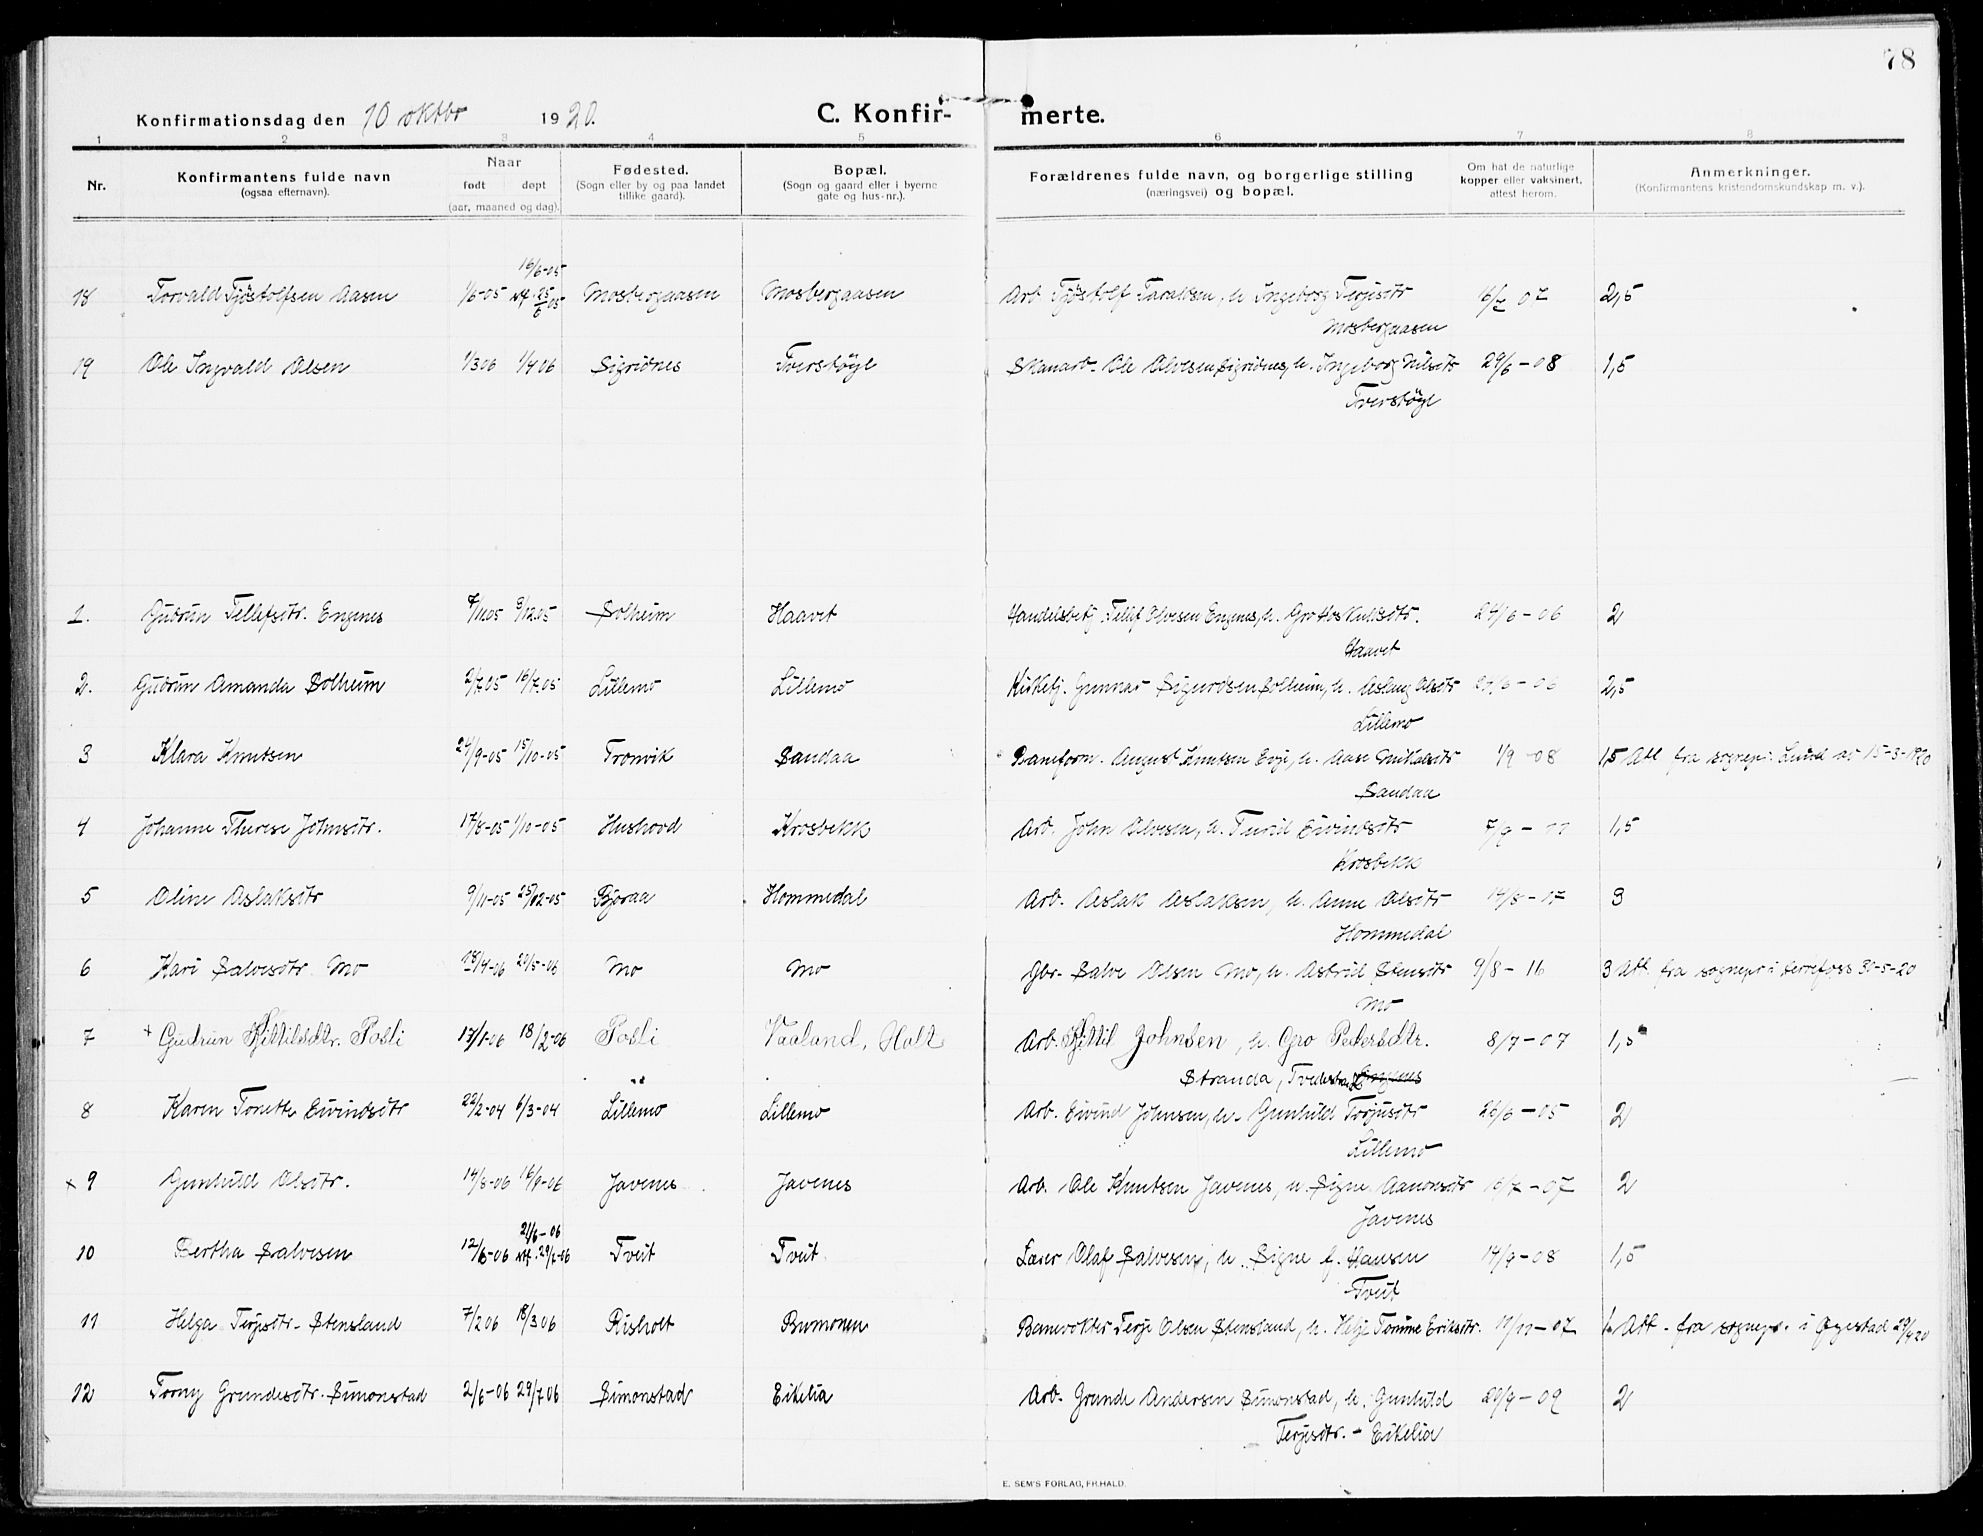 78
Konfirmationsdag den 10 oktbr 1920. C. Konfirmerte.
1 2 3 4 5 6 7 8
Nr. Konfirmantens fulde navn (ogsaa efternavn). Naar født døpt (aar, maaned og dag). Fødested. (Sogn eller by og paa landet tillike gaard). Bopæl. (Sogn og gaard eller i byerne gate og hus-nr.). Forældrenes fulde navn, og borgerlige stilling (næringsvei) og bopæl. Om hat de naturlige kopper eller vaksinert, attest herom. Anmerkninger. (Konfirmantens kristendomskundskap m. v.).
16/6-05
18 Torvald Tjöstolfsen Aasen 1/6-05 stf. 25/6 05 Mosbergaasen Mosbergaasen Arb Tjöstolf Taraldsen, h. Ingeborg Terjusdtr 07 2,5
Mosbergaasen
19 Ole Ingvald Olsen 1/3 06 1/4 06 Sigridnes Tverstöyl Ole Olvesen Sigridnes, h. Ingeborg Nilsdtr 29/6-08 1,5
Tverstöyl
1. Gudrun Tellefsdtr. Engenes 7/11.05 3/12.05 Solheim Haavet Handelsbetj. Tellef Olvesen Engenes, h. Gro 24/6-06 2
Haavet
2. Gudrun Amanda Solheim 2/7.05 16/7.05 Lillemo Lillemo Kirketj. Gunnar Sigurdsen Solheim, h. Aslaug Olsdtr 24/6-06 2,5
Lillemo
3 Klara Knutsen 24/9-05 15/10-05 Tromvik Sandaa Baneform. August Knutsen Evje, h. Aase 1/9-08 1,5 Att fra sognepr. Lund av 15-3-1920
Sandaa
4 Johanne Therese Johnsdtr. 17/8-05 1/10-05 Hushovd Krosbekk Arb. John Olvesen, h. Turid Eivindsdtr 7/9-11 1,5
Krosbekk
5 Oline Aslaksdtr 9/11-05 25/12-05 Bjoraa Hommedal Arb. Aslak Aslaksen, h. Anne Olsdtr 14/8-17 3
Hommedal
6 Kari Salvesdtr. Mo 18/4-06 20/5-06 Mo Mo Gbr. Salve Olsen Mo, h. Astrid Stensdtr 9/8-16 3 Att. fra sognepr i Herrefoss 30-5-20
Mo
7 + Gudrun Kittilsdtr. Posli 17/1-06 18/2-06 Posli Vaaland, Holt Arb. Kittil Johnsen, h. Gro Pedersdtr. 8/7-07 1,5
Stranda, Tvedestrand
8 Karen Tonette Eivindsdtr 22/2-04 6/3-04 Lillemo Lillemo Arb. Eivind Johnsen, h. Gunhild Terjusdtr 26/6-05 2
Lillemo
x 9 Gunhild Olsdtr. 14/8-06 16/9-06 Javenes Javenes Arb. Ole Knutsen Javenes, h. Signe Aanonsdtr 6/7-07 2
Javenes
21/6-06
10 Bertha Salvesen 12/6-06 stf. 29/7-06 Tveit Tveit Lærer Olaf Salvesen, h. Signe f. Hansen 14/9-08 1,5
Tveit
11 Helga Terjesdtr. Stensland 7/2 06 18/3 06 Risholt Bumonen Banevokter Terje Olsen Stensland, h. Helje Tomine Eriksdtr. 11/11-07 Att. fra sognepr. i Øyestad 29/9 20
12 Torny Grundesdtr. Simonstad 2/6-06 29/7 06 Simonstad Eikelia Arb. Grunde Andersen Simonstad, h. Gunhild 20/9-09 2
Terjesdtr. - Eikelia
E. SEM'S FORLAG, FR.HALD.